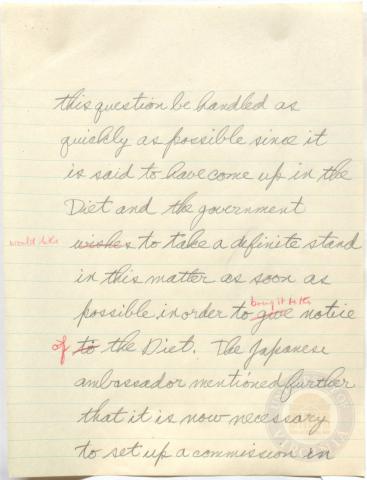 this question be handled as
quickly as possible since it
is said to have come up in the
Diet and the government
would like wishes to take a definite stand
in this matter as soon as
possible in order to give bring it to the notice
of to the Diet. The Japanese
ambassador mentioned further
that it is now necessary
to set up a commission in